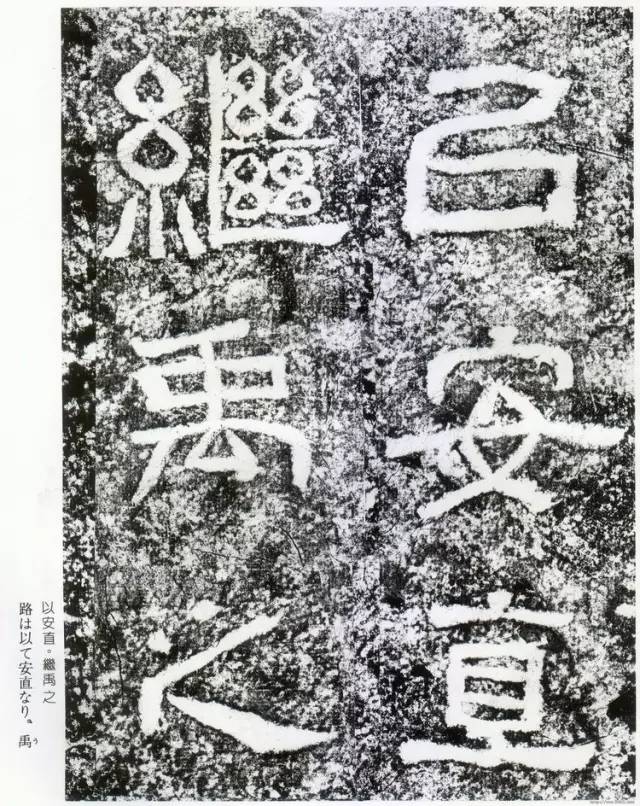 㠯安直
繼禹之
以安直。繼禹之
路は以て安直なり。禹
う